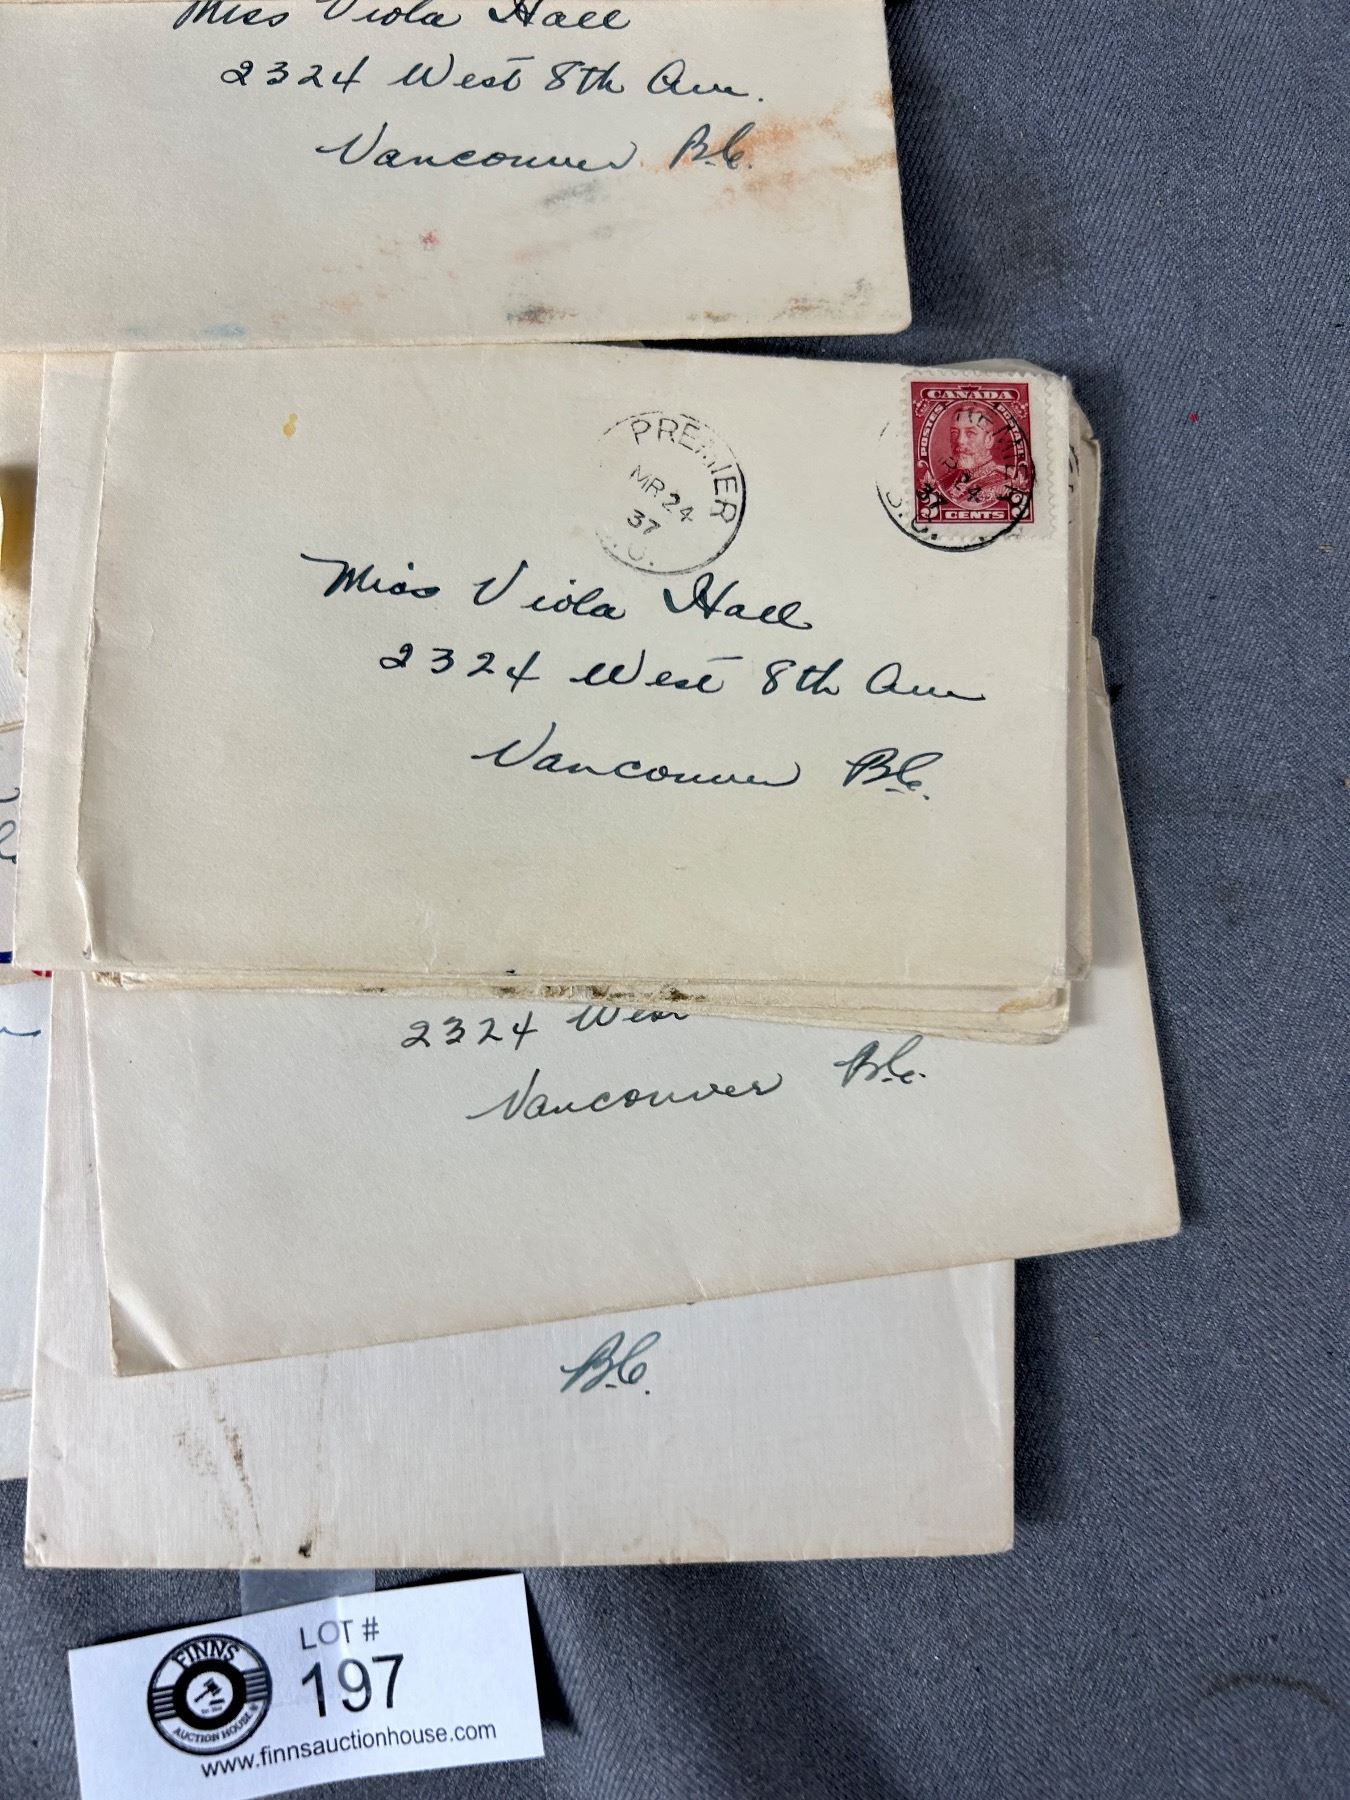 Miss Viola Hall
2324 West 8th Ave.
Vancouver B.C.
PREMIER
MR 24
37
CANADA
POSTES POSTAGE
3 CENTS 3
Miss Viola Hall
2324 West 8th Ave
Vancouver B.C.
2324 West
Vancouver B.C.
B.C.
FINNS
AUCTION HOUSE
LOT #
197
www.finnsauctionhouse.com